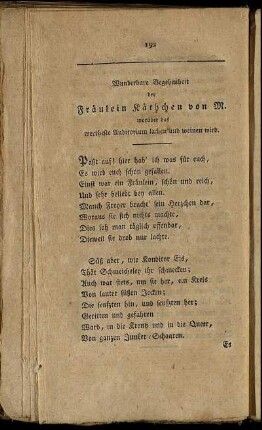 192
Wunderbare Begebenheit
des
Fräulein Käthchen von M.
worüber das
wertheste Auditorium lachen und weinen wird.
Paßt auf! hier hab' ich was für euch,
Es wird euch schon gefallen.
Einst war ein Fräulein, schön und reich,
Und sehr beliebt bey allen.
Manch Freyer bracht' sein Herzchen dar,
Woraus sie sich nichts machte,
Dies sah man täglich offenbar,
Dieweil sie drob nur lachte.
Süß aber, wie Konditor Eis,
Thät Schmeicheley ihr schmecken;
Auch war stets, um sie her, ein Kreis
Von lauter süßen Jecken;
Die seufzten hin, und seufzten her;
Geritten und gefahren
Ward, in die Kreutz und in die Queer,
Von ganzen Junker-Schaaren.
Es